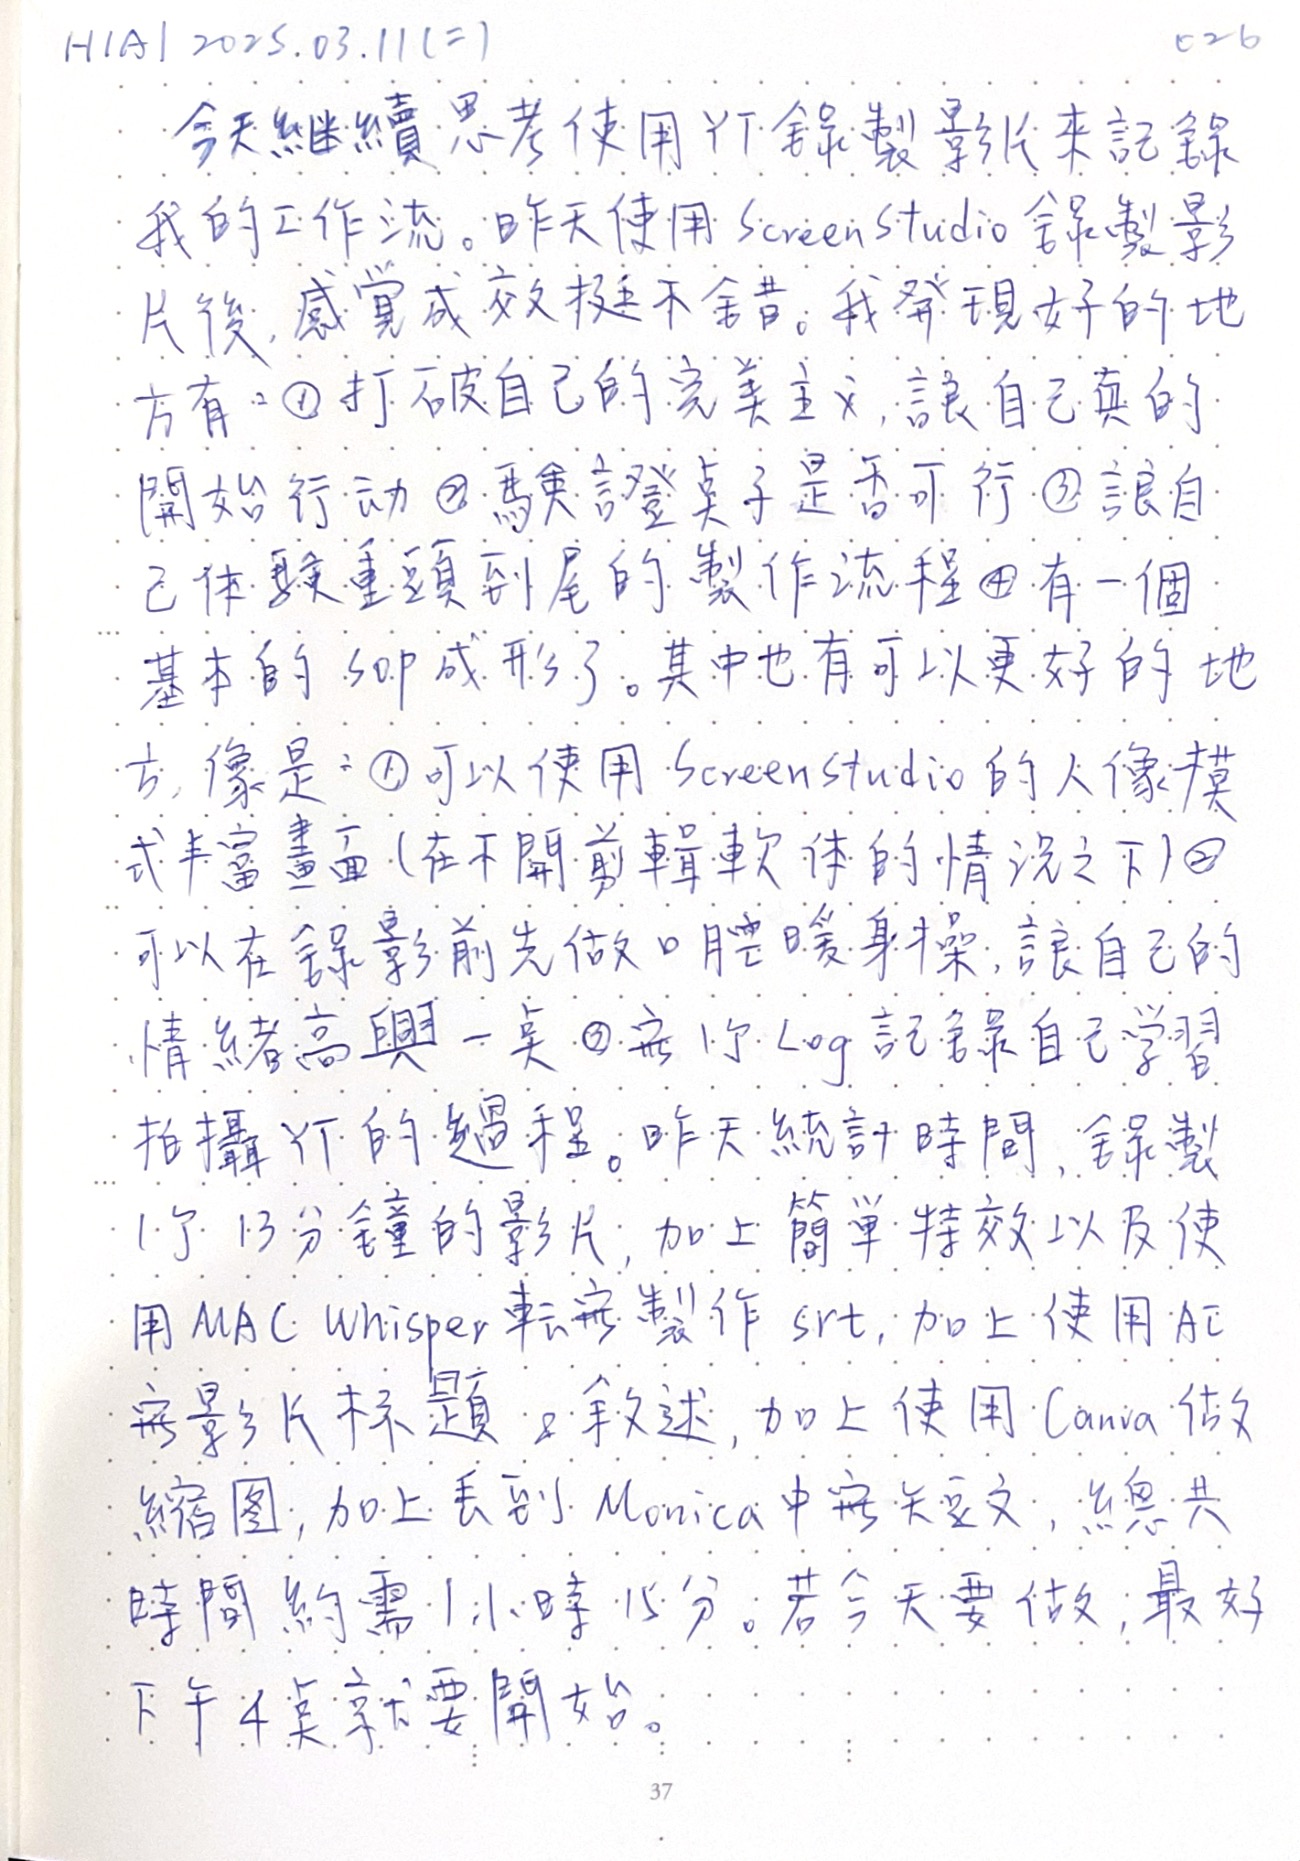 H1A1 2025.03.11(二) 026
今天繼續思考使用YT錄製影片來記錄
我的工作流。昨天使用ScreenStudio錄製影
片後,感覚成效挺不錯。我発現好的地
方有:①打破自己的完美主义,讓自己真的
開始行动②驗證桌子是否可行③讓自
己体驗重頭到尾的製作流程④有一個
基本的SOP成形了。其中也有可以更好的地
方,像是:①可以使用Screenstudio的人像模
式丰富畫面(在不開剪輯軟体的情況之下)②
可以在錄影前先做口腔暖身操,讓自己的
情緒高興一点③寫1个Log記錄自己学習
拍攝YT的過程。昨天統計時間,錄製
1个13分鐘的影片,加上簡單特效以及使
用MAC Whisper転寫製作srt,加上使用AI
寫影片标題&敘述,加上使用Canva做
縮图,加上丢到Monica中寫短文,總共
時間約需1小時15分。若今天要做,最好
下午4点就要開始。
37